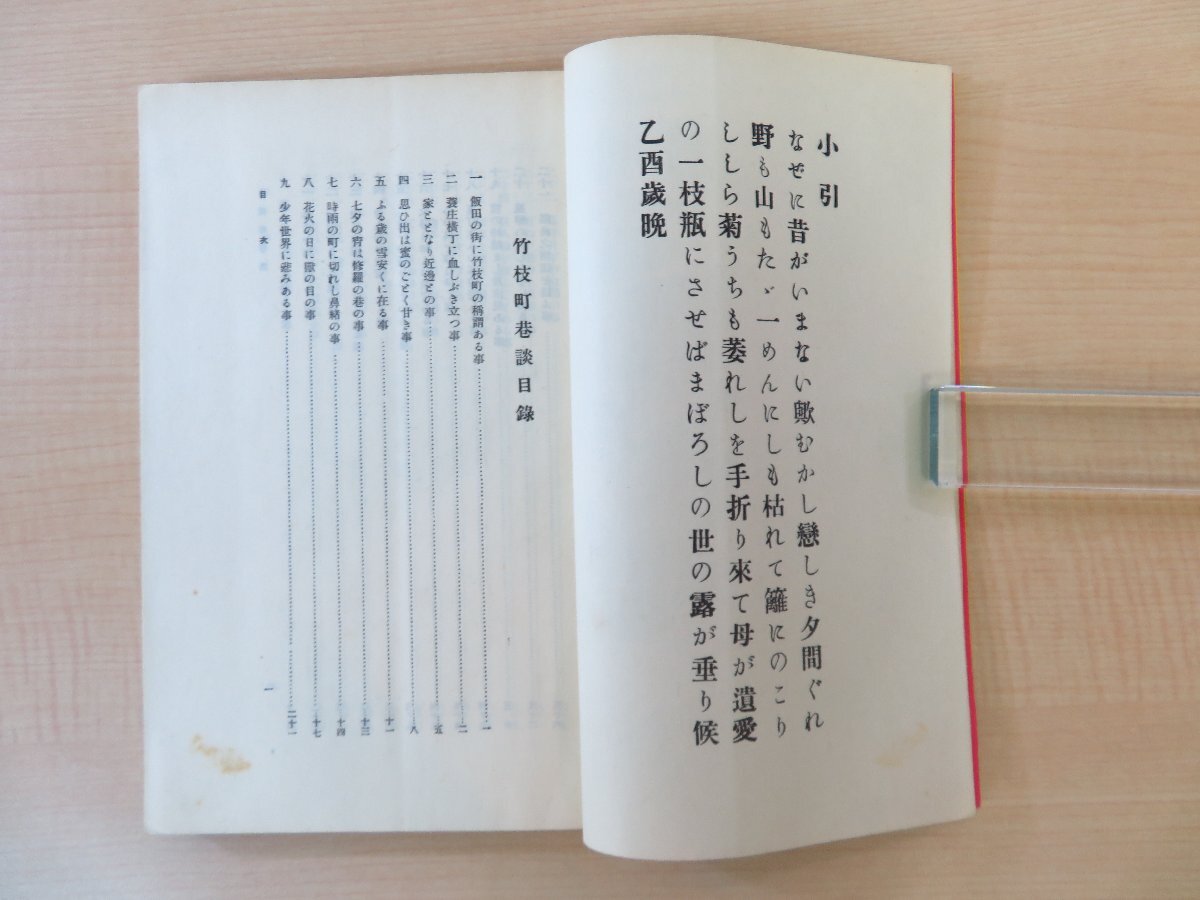 小引
なぜに昔がいまない歟むかし戀しき夕間ぐれ
野も山もたゞ一めんにしも枯れて籬にのこり
ししら菊うちも萎れしを手折り來て母が遺愛
の一枝瓶にさせばまぼろしの世の露が垂り候
乙酉歲晩
竹枝町巷談目錄
一 飯田の街に竹枝町の稱謂ある事 一
二 蓑庄橫丁に血しぶき立つ事 二
三 家ととなり近邊との事 五
四 思ひ出は蜜のごとく甘き事 八
五 ふる歲の雪安くに在る事 十一
六 七夕の宵は修羅の巷の事 十三
七 時雨の町に切れし鼻緖の事 十四
八 花火の日に の目の事 十七
九 少年世界に悲みある事 二十一
目次
一